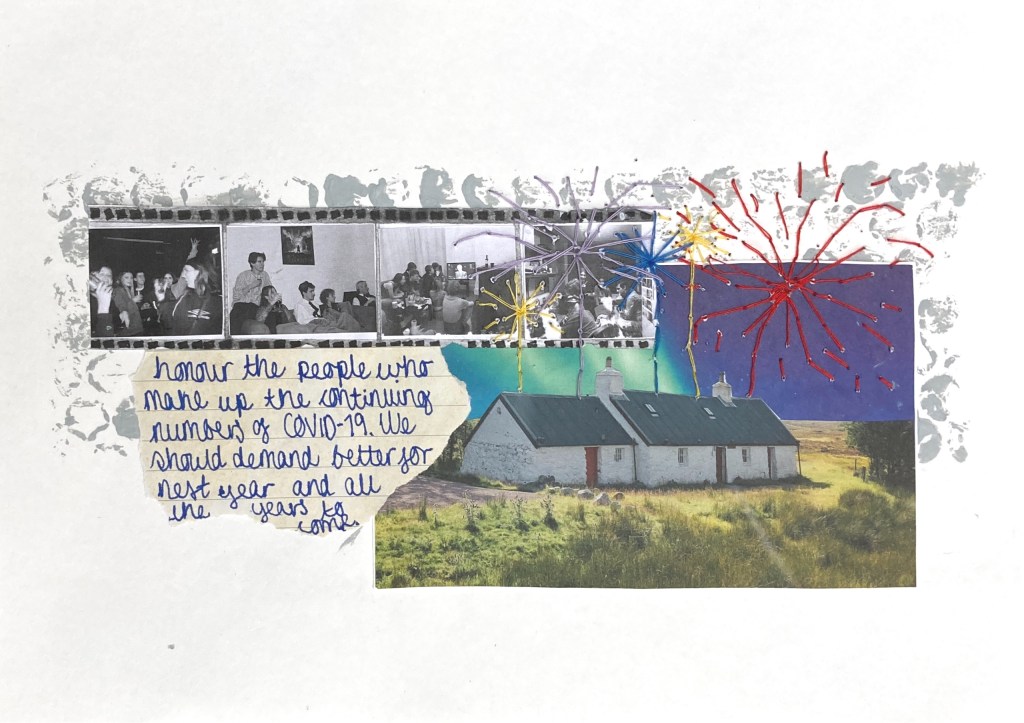 honour the people who
make up the continuing
numbers of COVID-19. We
should demand better for
next year and all
the years to
come.